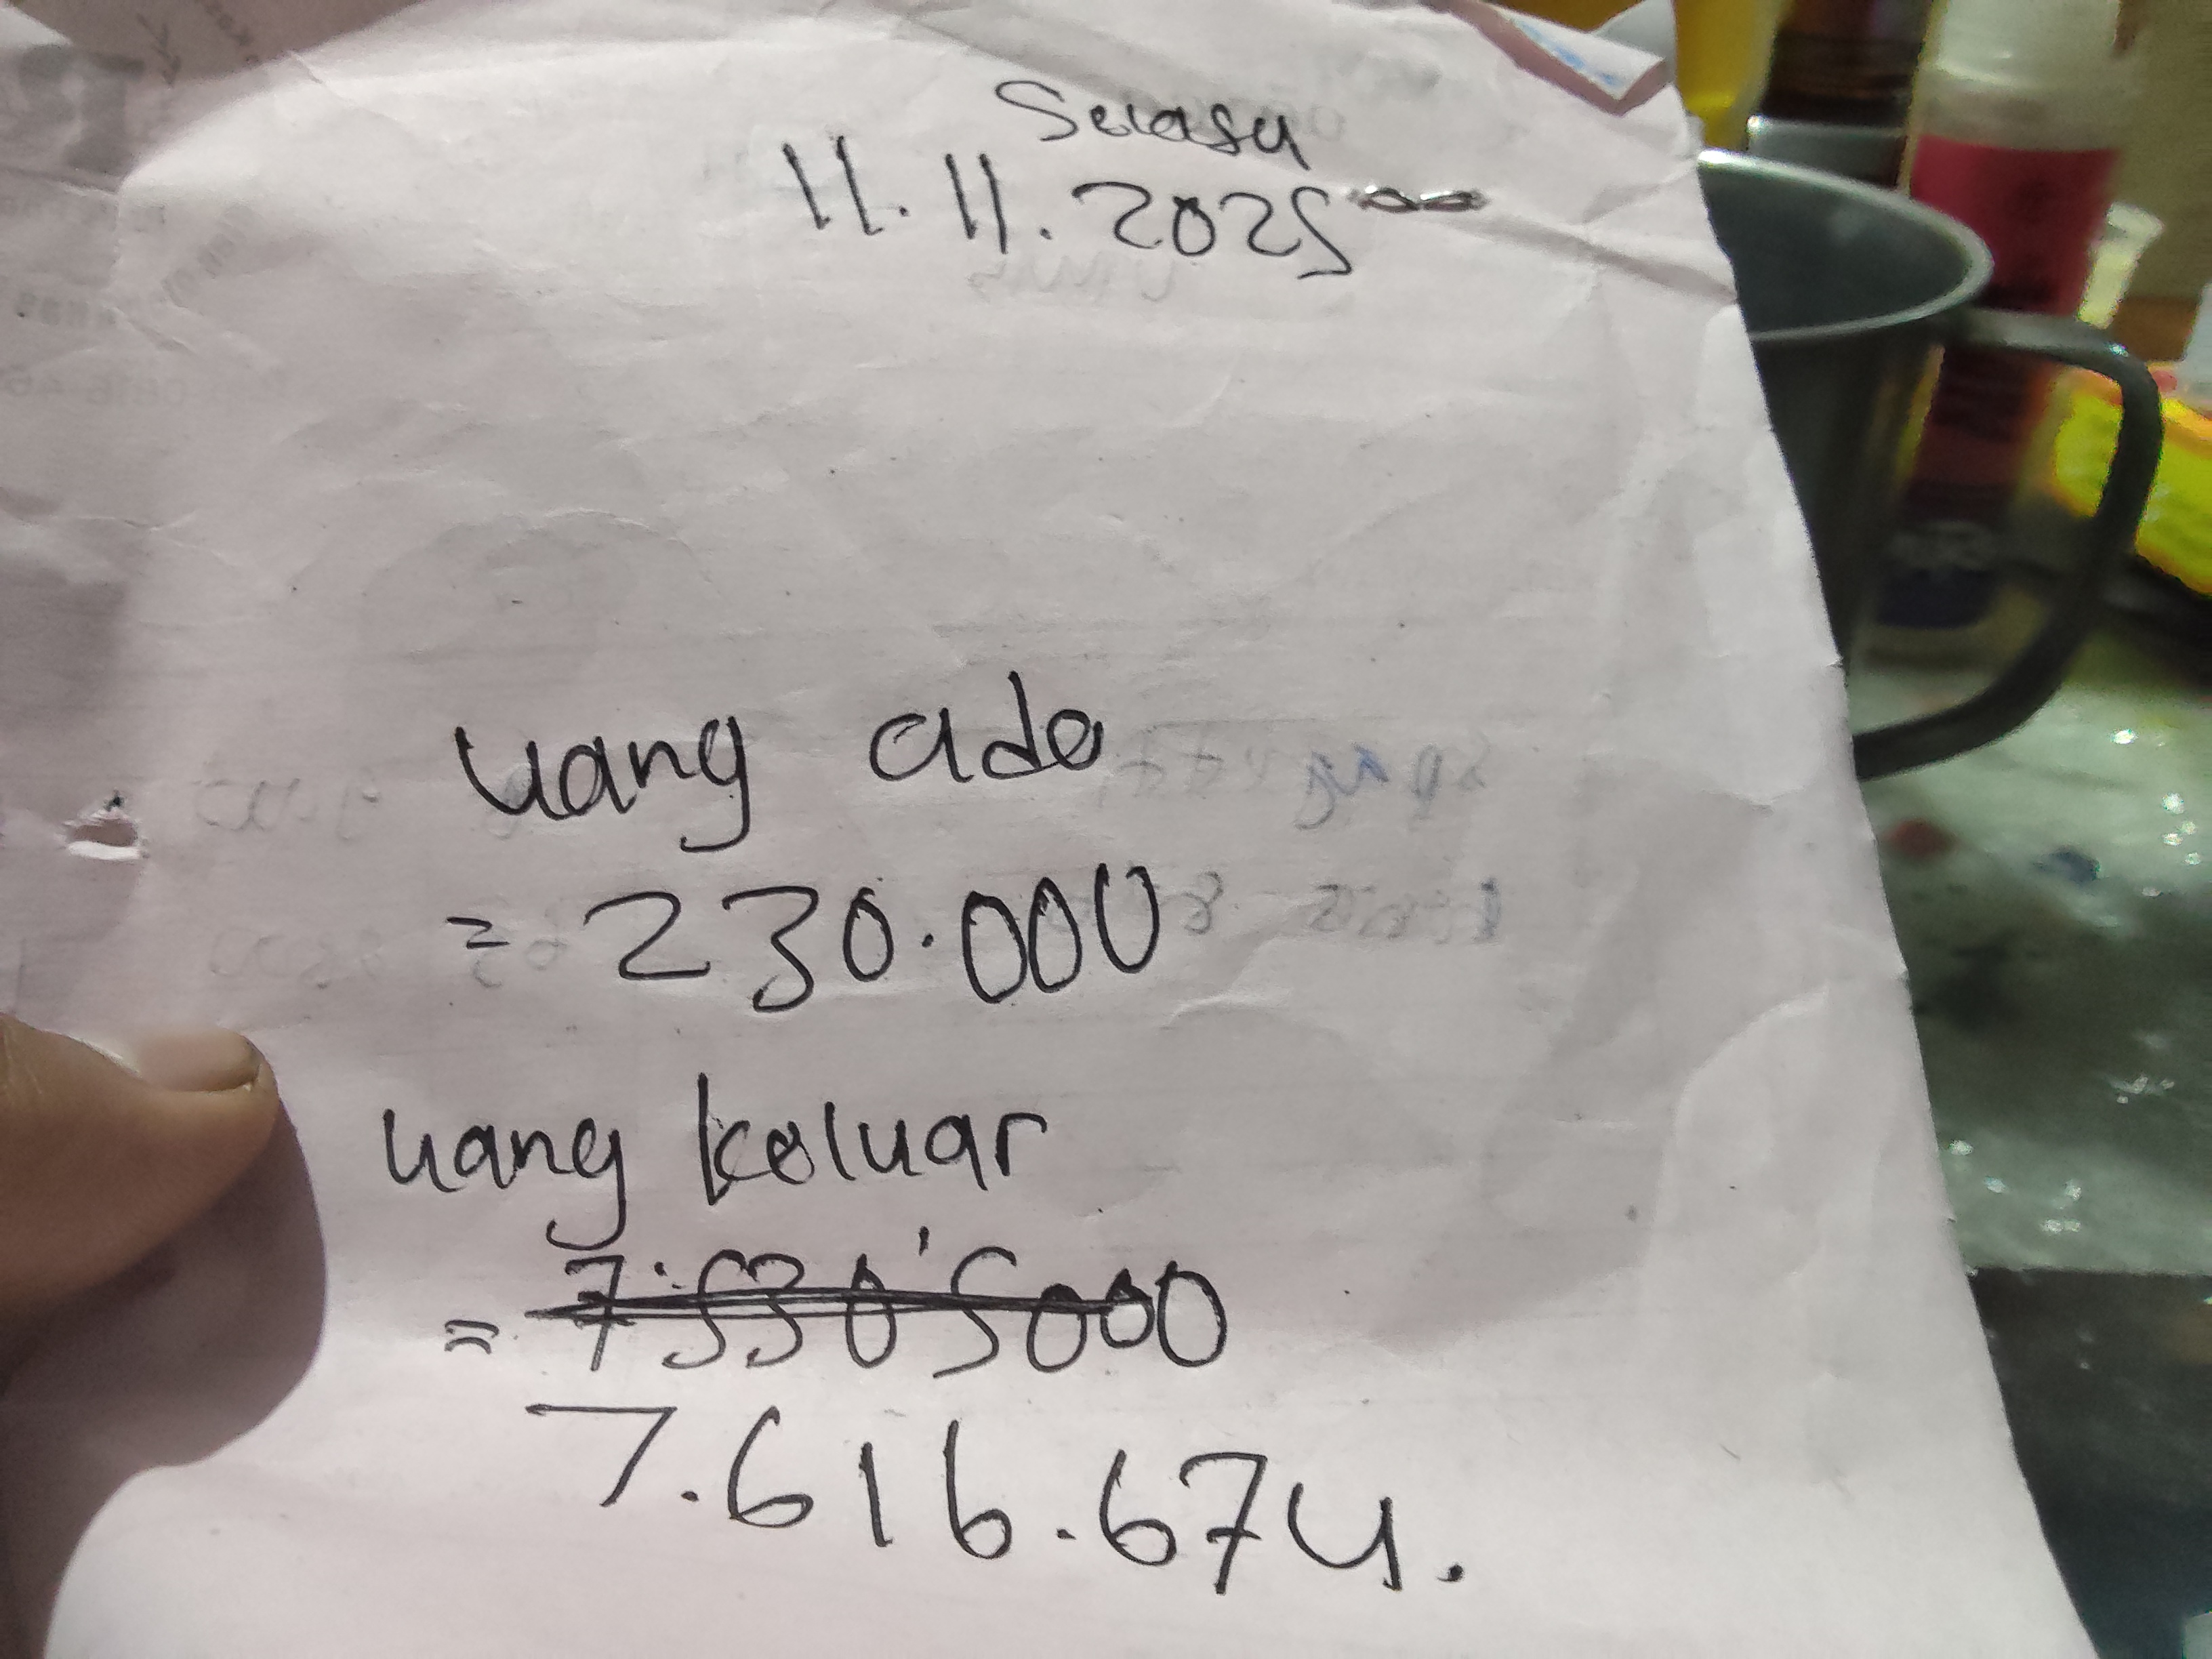 Selasa
11.11.2025
uang ada
= 230.000
uang keluar
= 7.530'5000
7.616.674.